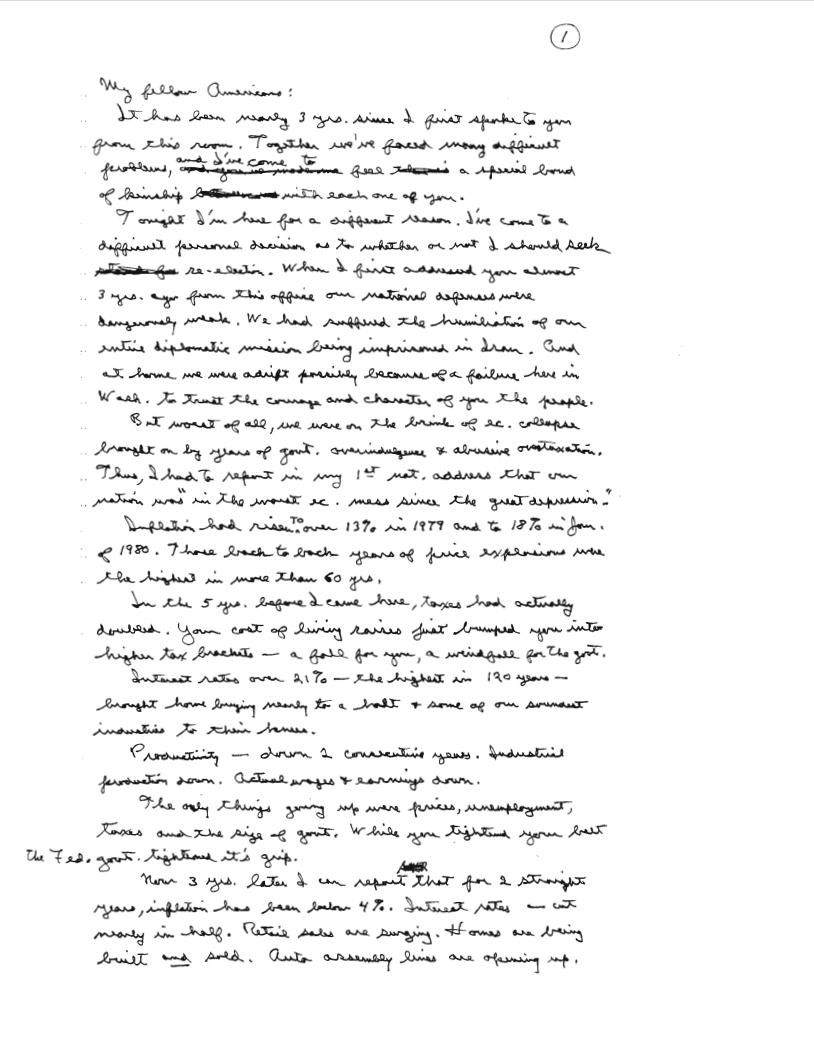 1
My fellow Americans:
It has been nearly 3 yrs. since I first spoke to you
from this room. Together we've faced many difficult
problems, and I've come to feel a special bond
of kinship with each one of you.
Tonight I'm here for a different reason. I've come to a
difficult personal decision as to whether or not I should seek
re-election. When I first addressed you almost
3 yrs. ago from this office our national defenses were
dangerously weak. We had suffered the humiliation of our
entire diplomatic mission being imprisoned in Iran. And
at home we were adrift possibly because of a failure here in
Wash. to trust the courage and character of you the people.
But worst of all, we were on the brink of ec. collapse
brought on by years of govt. overindulgence & abusive overtaxation.
Thus, I had to report in my 1st nat. address that our
nation was "in the worst ec. mess since the great depression."
Inflation had risen to over 13% in 1979 and to 18% in Jan.
of 1980. Those back to back years of price explosions were
the highest in more than 60 yrs.
In the 5 yrs. before I came here, taxes had actually
doubled. Your cost of living raises just bumped you into
higher tax brackets — a fall for you, a windfall for the govt.
Interest rates over 21% — the highest in 120 years —
brought home buying nearly to a halt & some of our soundest
industries to their knees.
Productivity — down 2 consecutive years. Industrial
production down. Actual wages & earnings down.
The only things going up were prices, unemployment,
taxes and the size of govt. While you tightened your belt
the Fed. govt. tightened it's grip.
Now 3 yrs. later I can report that for 2 straight
years, inflation has been below 4%. Interest rates — cut
nearly in half. Retail sales are surging. Homes are being
built and sold. Auto assembly lines are opening up.